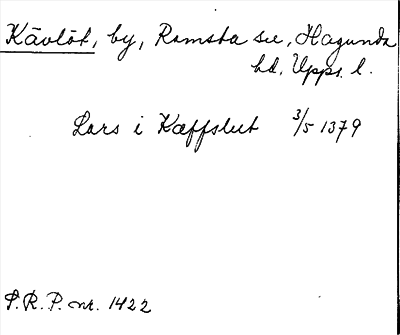 Kävlöt, by, Ramsta sn, Hagunda
hd, Upps. l.
Lars i Kæffslut 3/5 1379
S.R.P. nr. 1422